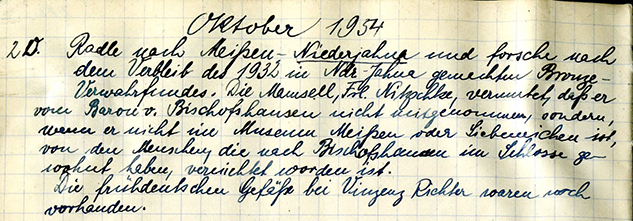 Oktober 1954
2. D. Radle nach Meißen-Niederjahna und forsche nach
dem Verbleib des 1932 in Ndr. Jahna gemachten Bronze-
Verwahrfundes. Die Mamsell, Frl. Nitzschke, vermutet, daß er
vom Baron v. Bischofshausen nicht mitgenommen, sondern,
wenn er nicht im Museum Meißen oder Siebeneichen ist,
von den Menschen, die nach Bischofshausen im Schlosse ge-
wohnt haben, vernichtet worden ist.
Die frühdeutschen Gefäße bei Vinzenz Richter waren noch
vorhanden.